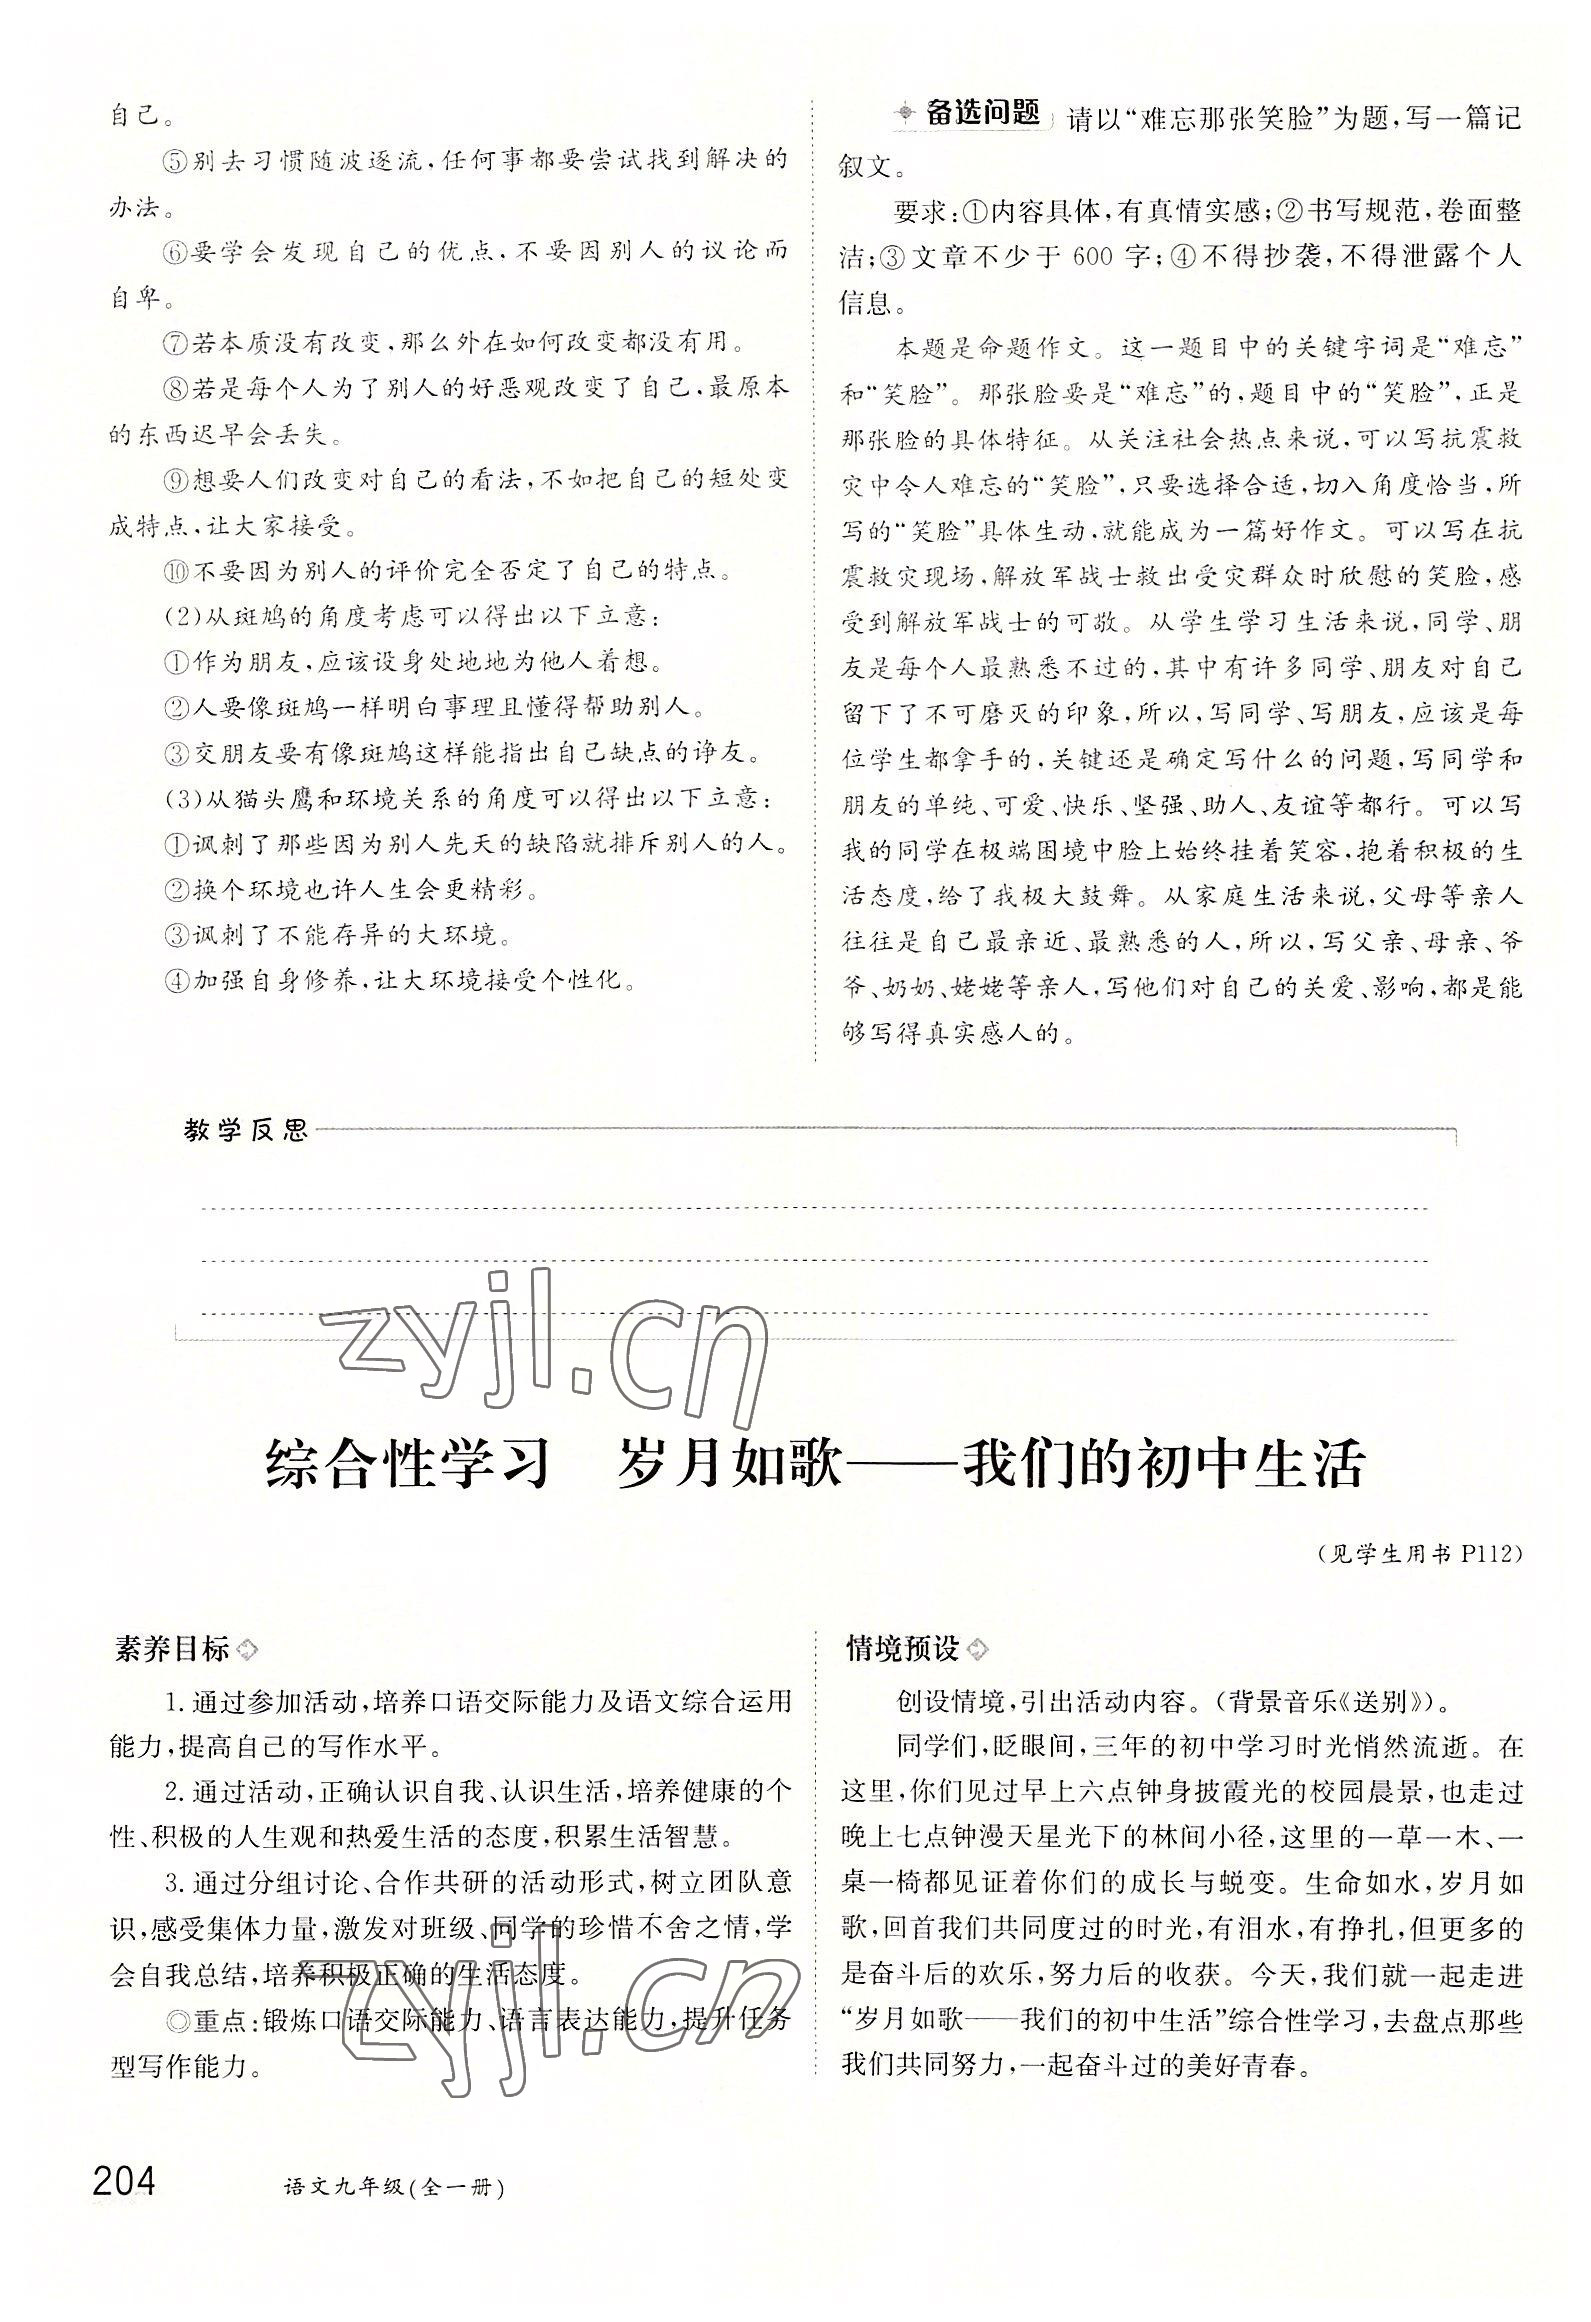 自己。
⑤别去习惯随波逐流,任何事都要尝试找到解决的
办法。
⑥要学会发现自己的优点,不要因别人的议论而
自卑。
⑦若本质没有改变,那么外在如何改变都没有用。
⑧若是每个人为了别人的好恶观改变了自己,最原本
的东西迟早会丢失。
⑨想要人们改变对自己的看法,不如把自己的短处变
成特点,让大家接受。
⑩不要因为别人的评价完全否定了自己的特点。
(2)从斑鸠的角度考虑可以得出以下立意:
①作为朋友,应该设身处地地为他人着想。
②人要像斑鸠一样明白事理且懂得帮助别人。
③交朋友要有像斑鸠这样能指出自己缺点的诤友。
(3)从猫头鹰和环境关系的角度可以得出以下立意:
①讽刺了那些因为别人先天的缺陷就排斥别人的人。
②换个环境也许人生会更精彩。
③讽刺了不能存异的大环境。
④加强自身修养,让大环境接受个性化。
备选问题 请以“难忘那张笑脸”为题,写一篇记
叙文。
要求:①内容具体,有真情实感;②书写规范,卷面整
洁;③文章不少于 600 字;④不得抄袭,不得泄露个人
信息。
本题是命题作文。这一题目中的关键字词是“难忘”
和“笑脸”。那张脸要是“难忘”的,题目中的“笑脸”,正是
那张脸的具体特征。从关注社会热点来说,可以写抗震救
灾中令人难忘的“笑脸”,只要选择合适,切入角度恰当,所
写的“笑脸”具体生动,就能成为一篇好作文。可以写在抗
震救灾现场,解放军战士救出受灾群众时欣慰的笑脸,感
受到解放军战士的可敬。从学生学习生活来说,同学、朋
友是每个人最熟悉不过的,其中有许多同学、朋友对自己
留下了不可磨灭的印象,所以,写同学、写朋友,应该是每
位学生都拿手的,关键还是确定写什么的问题,写同学和
朋友的单纯、可爱、快乐、坚强、助人、友谊等都行。可以写
我的同学在极端困境中脸上始终挂着笑容,抱着积极的生
活态度,给了我极大鼓舞。从家庭生活来说,父母等亲人
往往是自己最亲近、最熟悉的人,所以,写父亲、母亲、爷
爷、奶奶、姥姥等亲人,写他们对自己的关爱、影响,都是能
够写得真实感人的。
教学反思
zyjl.cn
综合性学习 岁月如歌——我们的初中生活
(见学生用书 P112)
素养目标
1. 通过参加活动,培养口语交际能力及语文综合运用
能力,提高自己的写作水平。
2. 通过活动,正确认识自我、认识生活,培养健康的个
性、积极的人生观和热爱生活的态度,积累生活智慧。
3. 通过分组讨论、合作共研的活动形式,树立团队意
识,感受集体力量,激发对班级、同学的珍惜不舍之情,学
会自我总结,培养积极正确的生活态度。
◎重点:锻炼口语交际能力、语言表达能力,提升任务
型写作能力。
zyjl.cn
情境预设
创设情境,引出活动内容。(背景音乐《送别》)。
同学们,眨眼间,三年的初中学习时光悄然流逝。在
这里,你们见过早上六点钟身披霞光的校园晨景,也走过
晚上七点钟漫天星光下的林间小径,这里的一草一木、一
桌一椅都见证着你们的成长与蜕变。生命如水,岁月如
歌,回首我们共同度过的时光,有泪水,有挣扎,但更多的
是奋斗后的欢乐,努力后的收获。今天,我们就一起走进
“岁月如歌——我们的初中生活”综合性学习,去盘点那些
我们共同努力,一起奋斗过的美好青春。
204
语文九年级(全一册)